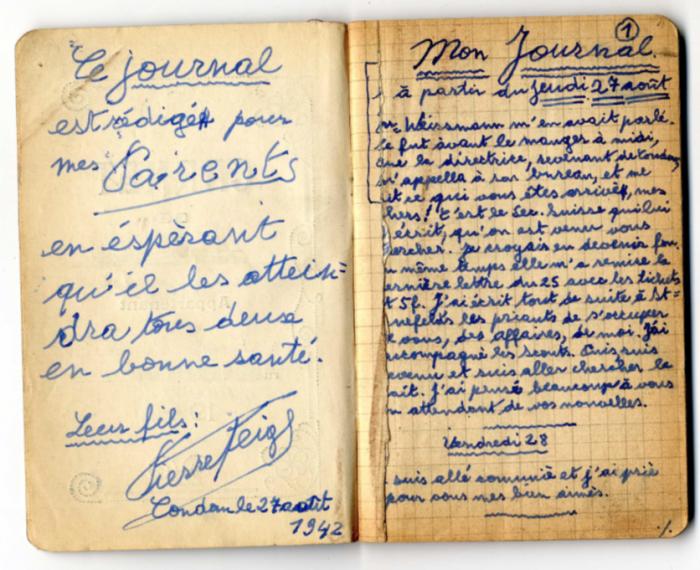 Le journal
est rédigé pour
mes Parents
en éspèrant
qu'il les attein=
dra tous deux
en bonne santé.
Leur fils:
Pierre Feigl
Condom le 27 août
1942
1
Mon Journal
à partir du jeudi 27 août
Weissmann m'en avait parlé.
ce fut avant le manger à midi,
que la directrice, revenant de Condom,
m'appella à son bureau, et me
dit ce qui vous êtes arrivé, mes
chers! C'est le Sec. Suisse qui lui
écrit, qu'on est venu vous
chercher. Je croyais en devenir fou.
même temps elle m'a remise la
ernière lettre du 25 avec les tickets
et 5f. J'ai écrit tout de suite à St=
les priants de s'occuper
vous, des affaires, de moi. J'ai
accompagné les scouts. Puis suis
revenu et suis aller chercher le
ait. J'ai pensé beaucoup à vous
n attendant de vos nouvelles.
Vendredi 28
suis allé comunié et j'ai priè
pour vous mes bien aimés.
./.